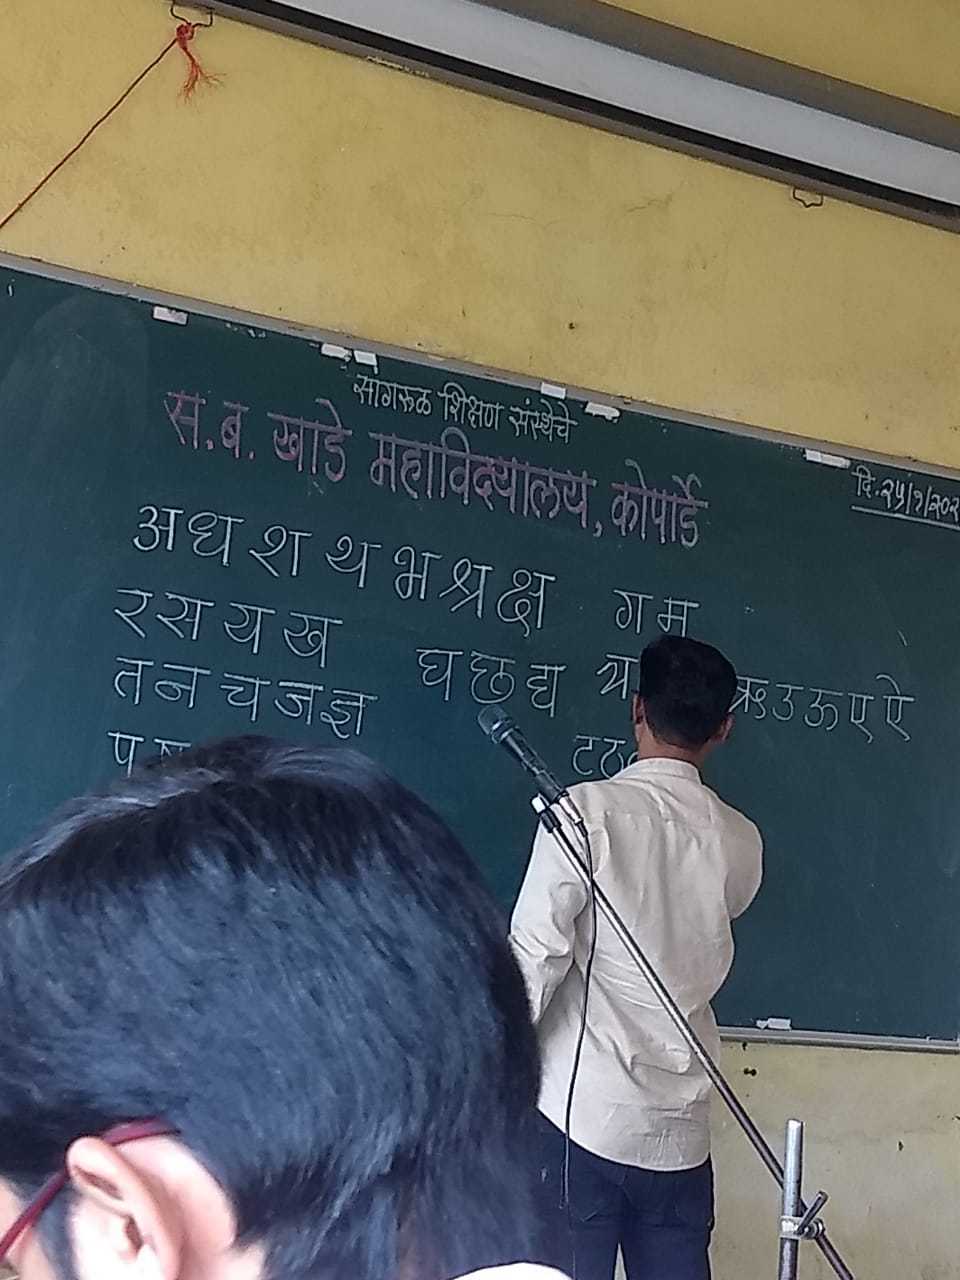 सांगरुळ शिक्षण संस्थेचे
स.ब. खाडे महाविद्यालय, कोपार्डे
दि. २५/१/२०२
अ ध श थ भ श्र क्ष ग म
र स य ख
घ छ द्य त्र ऋ उ ऊ ए ऐ
त न च ज ज्ञ
प ष ट ठ